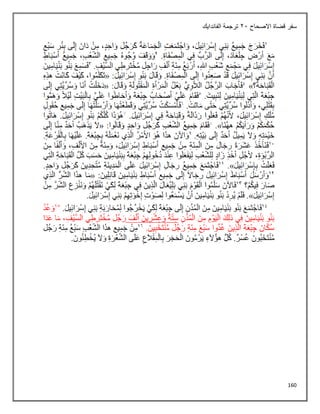 سفر قضاة الاصحاح ٢٠ ترجمة الفاندايك
١فَخَرَجَ جَمِيعُ بَنِي إِسْرَائِيلَ، وَاجْتَمَعَتِ الْجَمَاعَةُ كَرَجُل وَاحِدٍ، مِنْ دَانَ إِلَى بِئْرِ سَبْعٍ
مَعَ أَرْضِ جِلْعَادَ، إِلَى الرَّبِّ فِي الْمِصْفَاةِ. ٢وَوَقَفَ وُجُوهُ جَمِيعِ الشَّعْبِ، جَمِيعُ أَسْبَاطِ
إِسْرَائِيلَ فِي مَجْمَعِ شَعْبِ اللهِ، أَرْبَعُ مِئَةِ أَلْفِ رَاجِل مُخْتَرِطِي السَّيْفِ. ٣فَسَمِعَ بَنُو بَنْيَامِينَ
أَنَّ بَنِي إِسْرَائِيلَ قَدْ صَعِدُوا إِلَى الْمِصْفَاةِ. وَقَالَ بَنُو إِسْرَائِيلَ: «تَكَلَّمُوا، كَيْفَ كَانَتْ هذِهِ
الْقَبَاحَةُ؟» ٤فَأَجَابَ الرَّجُلُ اللاَّوِيُّ بَعْلُ الْمَرْأَةِ الْمَقْتُولَةِ وَقَالَ: «دَخَلْتُ أَنَا وَسُرِّيَّتِي إِلَى
جِبْعَةَ الَّتِي لِبَنْيَامِينَ لِنَبِيتَ. ٥فَقَامَ عَلَيَّ أَصْحَابُ جِبْعَةَ وَأَحَاطُوا عَلَيَّ بِالْبَيْتِ لَيْلاً وَهَمُّوا
بِقَتْلِي، وَأَذَلُّوا سُرِّيَّتِي حَتَّى مَاتَتْ. ٦فَأَمْسَكْتُ سُرِّيَّتِي وَقَطَّعْتُهَا وَأَرْسَلْتُهَا إِلَى جَمِيعِ حُقُولِ
مُلْكِ إِسْرَائِيلَ، لأَنَّهُمْ فَعَلُوا رَذَالَةً وَقَبَاحَةً فِي إِسْرَائِيلَ. ٧هُوَذَا كُلُّكُمْ بَنُو إِسْرَائِيلَ. هَاتُوا
حُكْمَكُمْ وَرَأْيَكُمْ ههُنَا». ٨فَقَامَ جَمِيعُ الشَّعْبِ كَرَجُل وَاحِدٍ وَقَالُوا: «لاَ يَذْهَبُ أَحَدٌ مِنَّا إِلَى
خَيْمَتِهِ وَلاَ يَمِيلُ أَحَدٌ إِلَى بَيْتِهِ. ٩وَالآنَ هذَا هُوَ الأَمْرُ الَّذِي نَعْمَلُهُ بِجِبْعَةَ. عَلَيْهَا بِالْقُرْعَةِ.
١٠فَنَأْخُذُ عَشَرَةَ رِجَال مِنَ الْمِئَةِ مِنْ جَمِيعِ أَسْبَاطِ إِسْرَائِيلَ، وَمِئَةً مِنَ الأَلْفِ، وَأَلْفًا مِنَ
الرِّبْوَةِ، لأَجْلِ أَخْذِ زَادٍ لِلشَّعْبِ لِيَفْعَلُوا عِنْدَ دُخُولِهِمْ جِبْعَةَ بِبَنْيَامِينَ حَسَبَ كُلِّ الْقَبَاحَةِ الَّتِي
فَعَلَتْ بِإِسْرَائِيلَ». ١١فَاجْتَمَعَ جَمِيعُ رِجَالِ إِسْرَائِيلَ عَلَى الْمَدِينَةِ مُتَّحِدِينَ كَرَجُل وَاحِدٍ.
١٢وَأَرْسَلَ أَسْبَاطُ إِسْرَائِيلَ رِجَالاً إِلَى جَمِيعِ أَسْبَاطِ بَنْيَامِينَ قَائِلِينَ: «مَا هذَا الشَّرُّ الَّذِي
صَارَ فِيكُمْ؟ ١٣فَالآنَ سَلِّمُوا الْقَوْمَ بَنِي بَلِيَّعَالَ الَّذِينَ فِي جِبْعَةَ لِكَيْ نَقْتُلَهُمْ وَنَنْزِعَ الشَّرَّ مِنْ
إِسْرَائِيلَ». فَلَمْ يُرِدْ بَنُو بَنْيَامِينَ أَنْ يَسْمَعُوا لِصَوْتِ إِخْوَتِهِمْ بَنِي إِسْرَائِيلَ.
١٤فَاجْتَمَعَ بَنُو بَنْيَامِينَ مِنَ الْمُدُنِ إِلَى جِبْعَةَ لِكَيْ يَخْرُجُوا لِمُحَارَبَةِ بَنِي إِسْرَائِيلَ. ١٥وَعُدَّ
بَنُو بَنْيَامِينَ فِي ذلِكَ الْيَوْمِ مِنَ الْمُدُنِ سِتَّةً وَعِشْرِينَ أَلْفَ رَجُل مُخْتَرِطِي السَّيْفِ، مَا عَدَا
سُكَّانَ جِبْعَةَ الَّذِينَ عُدُّوا سَبْعَ مِئَةِ رَجُل مُنْتَخَبِينَ. ١٦مِنْ جَمِيعِ هذَا الشَّعْبِ سَبْعُ مِئَةِ رَجُل
مُنْتَخَبُونَ عُسْرٌ. كُلُّ هؤُلاَءِ يَرْمُونَ الْحَجَرَ بِالْمِقْلاَعِ عَلَى الشَّعْرَةِ وَلاَ يُخْطِئُونَ.
160